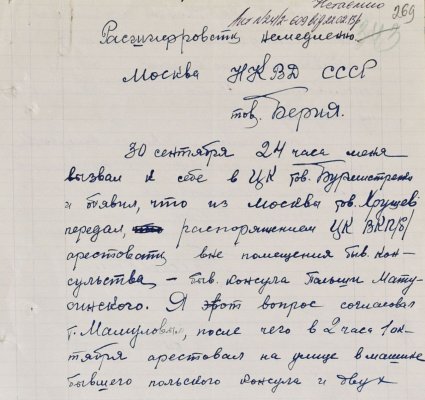 Негласно
Акт №24/2-609 від 22.02.13р
269
Расшифровать немедленно
Москва НКВД СССР
тов. Берия.
30 сентября 24 часа меня
вызвал к себе в ЦК тов. Бурмистренко
и объявил, что из Москвы тов. Хрущев
передал, распоряжением ЦК ВКП/б/
арестовать вне помещения быв. кон-
сульства – быв. консула Польши Мату-
синского. Я этот вопрос согласовал
т. Мамуловым, после чего в 2 часа 1 ок-
тября арестовал на улице в машине
бывшего польского консула и двух